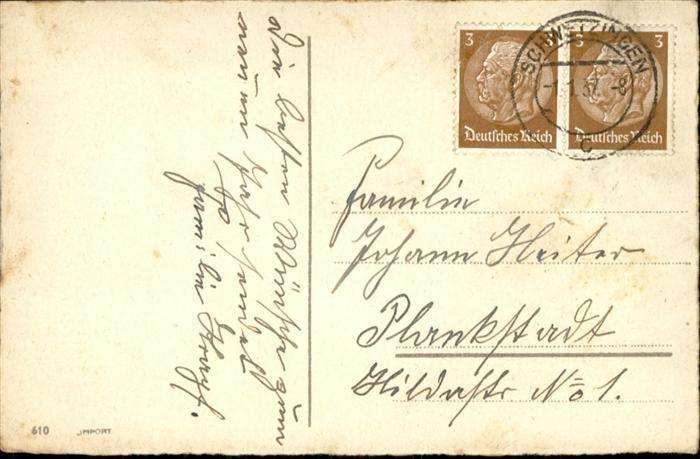 die besten Wünsche zum
neuen Jahr sendet
Familie
3
3
Deutsches Reich
Deutsches Reich
SCHWETZINGEN
-1.1.37.-8
c
Familie
Johann Heiter
Plankstadt
Hildastr No 1.
610 IMPORT